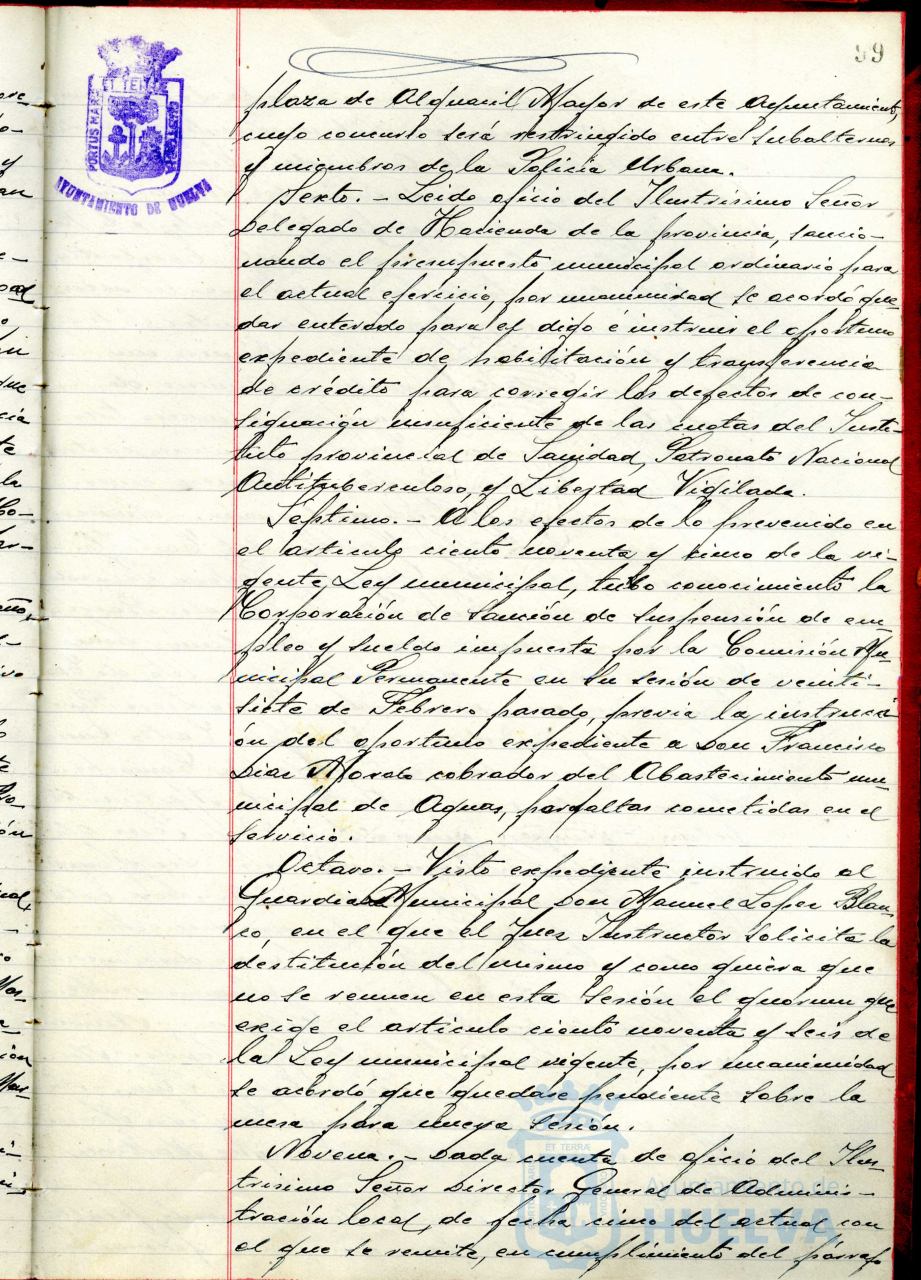 99
PORTUS MARIS ET TERRÆ
AYUNTAMIENTO DE HUELVA
plaza de Alguacil Mayor de este Ayuntamiento,
cuyo concurso será restringido entre subalternos
y miembros de la Policia Urbana.
Sexto. - Leido oficio del Ilustrisimo Señor
Delegado de Hacienda de la provincia, sancio-
nando el presupuesto municipal ordinario para
el actual ejercicio, por unanimidad se acordó que-
dar enterado para el digo é instruir el oportuno
expediente de habilitación y transferencia
de crédito para corregir los defectos de con-
signación insuficiente de las cuotas del Insti-
tuto provincial de Sanidad, Patronato Nacional
Antituberculoso, y Libertad Vigilada.
Séptimo. - A los efectos de lo prevenido en
el articulo ciento noventa y cinco de la vi-
gente Ley municipal, tubo conocimiento la
Corporación de sanción de suspensión de em-
pleo y sueldo impuesta por la Comisión Mu-
nicipal Permanente en su sesión de veinti-
siete de Febrero pasado, previa la instrucci
ón del oportuno expediente a Don Francisco
Diaz Morato cobrador del Abastecimiento mu-
nicipal de Aguas, por faltas cometidas en el
servicio.
Octavo. - Visto expediente instruido al
Guardia Municipal Don Manuel Lopez Blan-
co, en el que el Juez Instructor solicita la
destitución del mismo y como quiera que
no se reunen en esta sesión el quorum que
exige el articulo ciento noventa y seis de
la Ley municipal vigente, por unanimidad
se acordó que quedase pendiente sobre la
mesa para nueva sesión.
Novena. - Dada cuenta de oficio del Ilus-
trisimo Señor Director General de Adminis-
tración local, de fecha cinco del actual con
el que se remite, en cumplimiento del párraf
ET TERRÆ
Ayuntamiento de
HUELVA